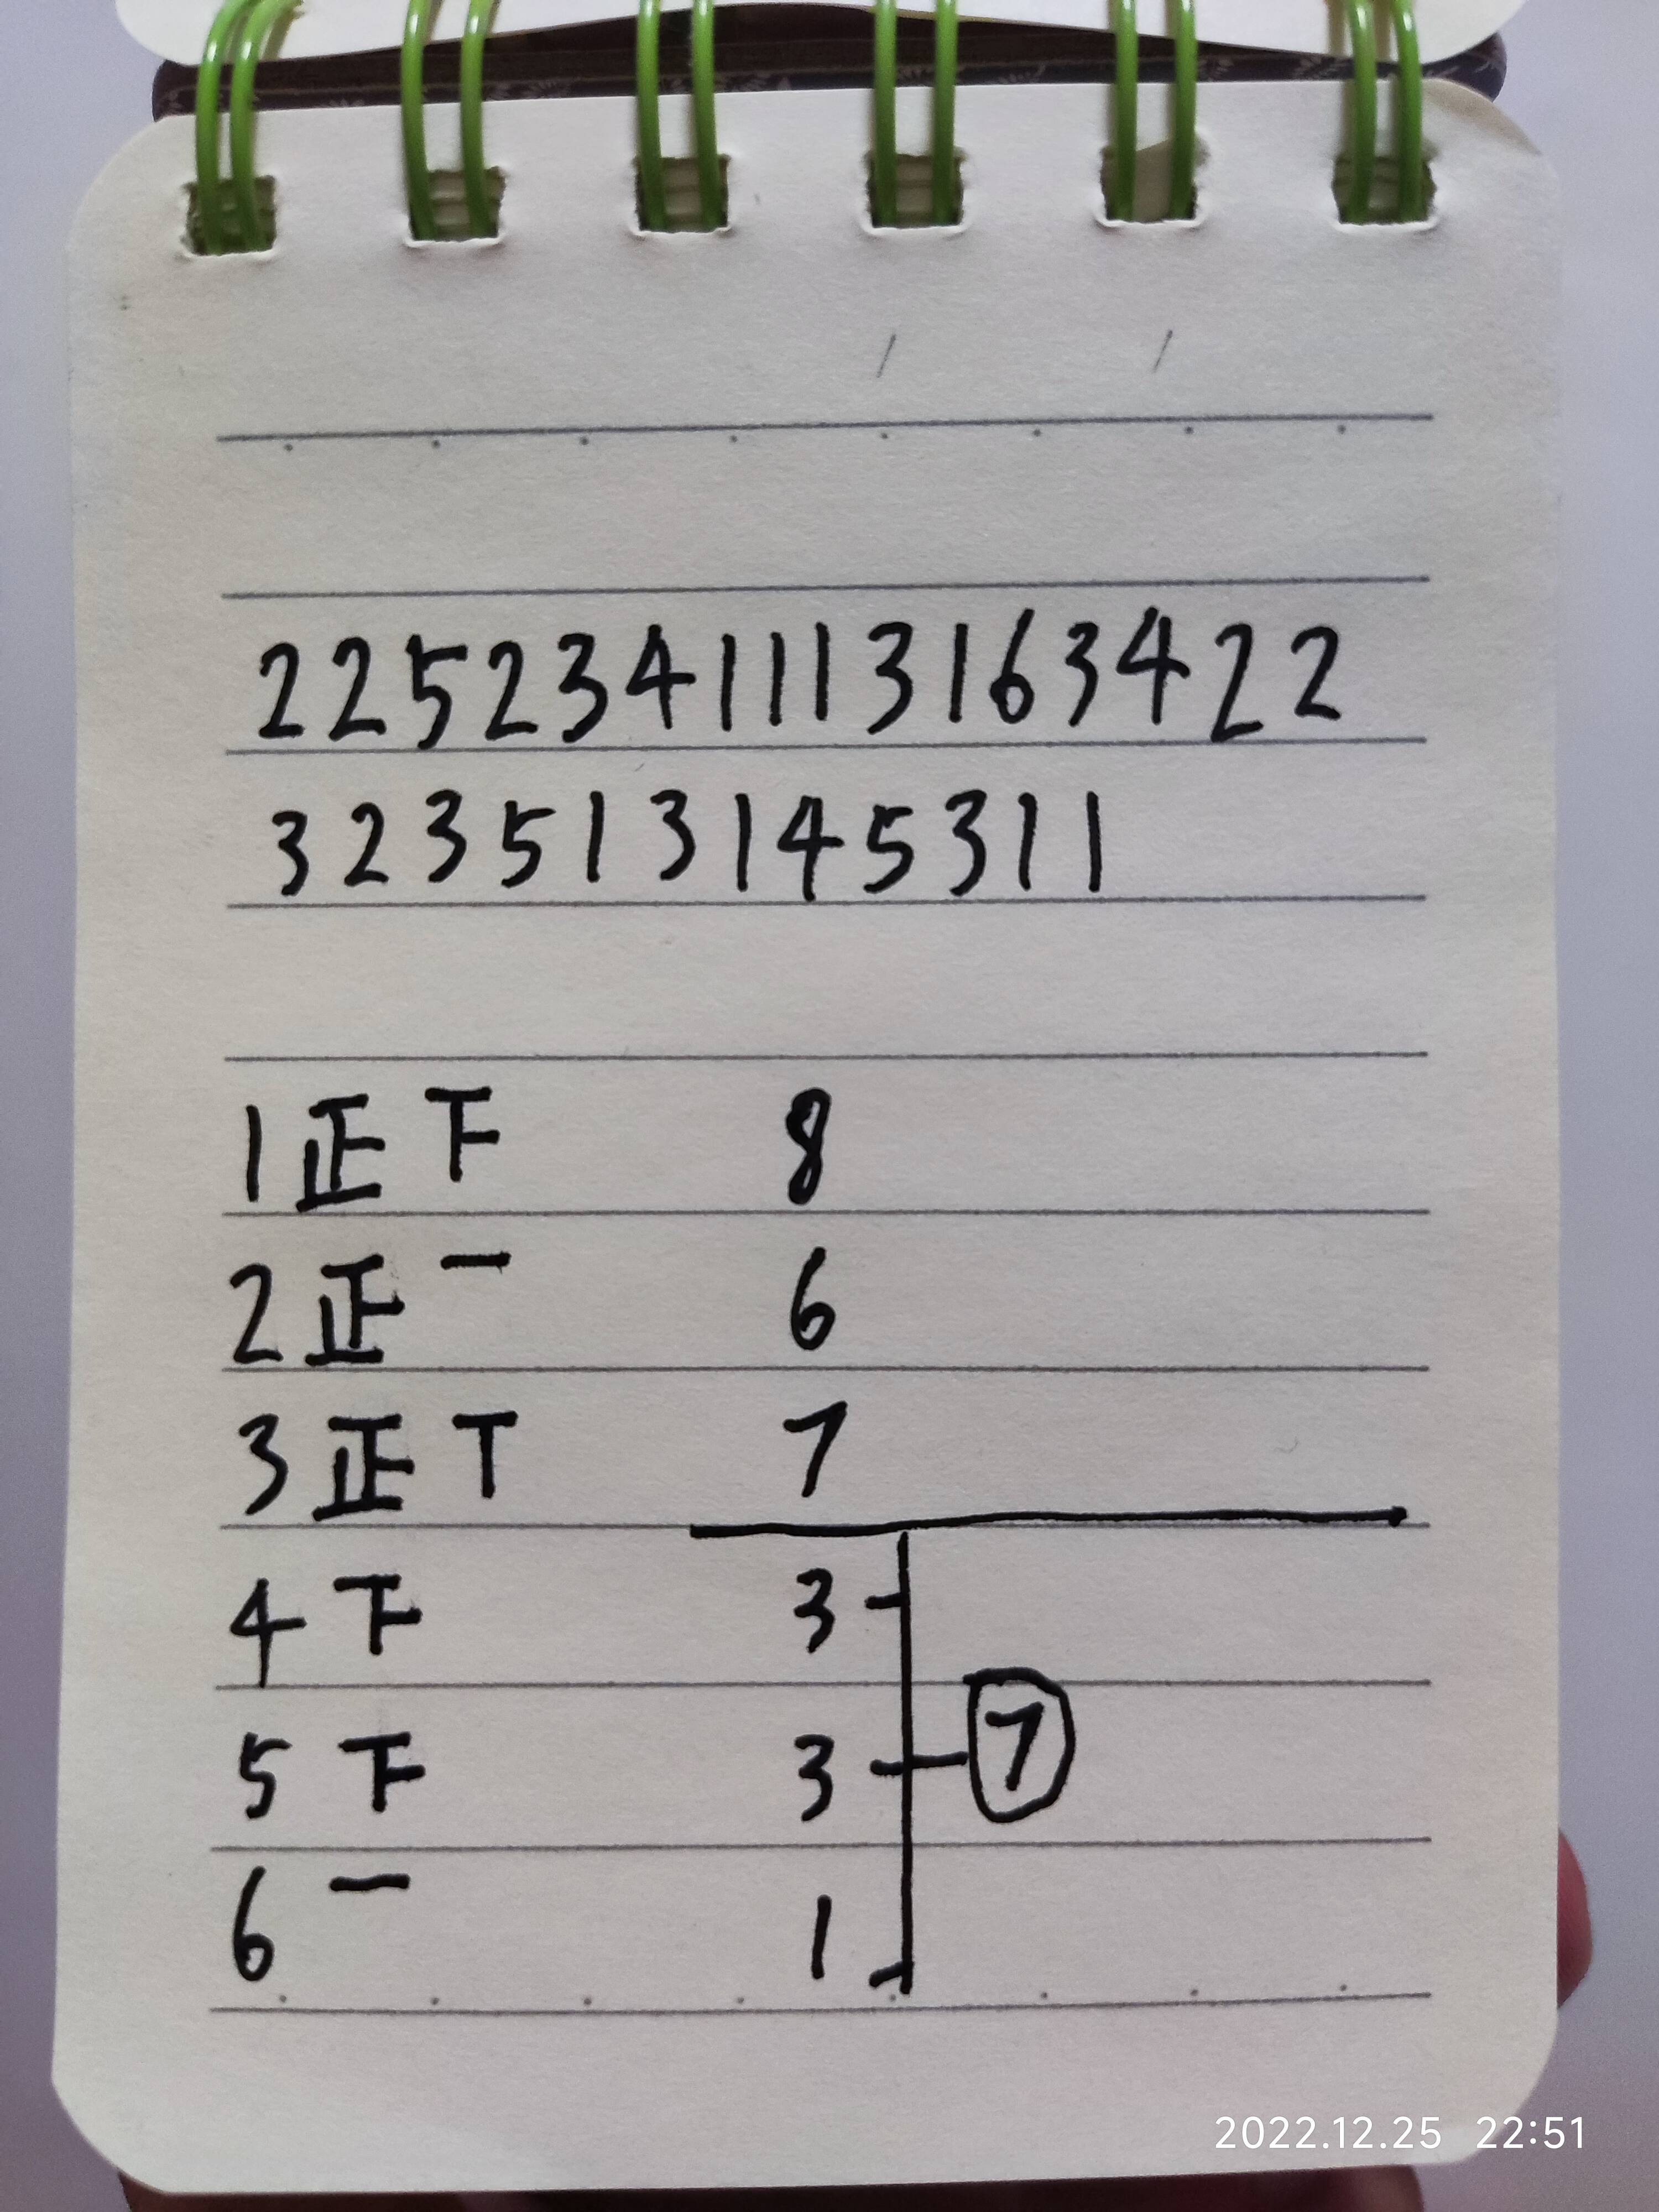 2252341113163422
323513145311
1 正 下 8
2 正 一 6
3 正 丅 7
4 下 3
5 下 3 7
6 一 1
2022.12.25 22:51